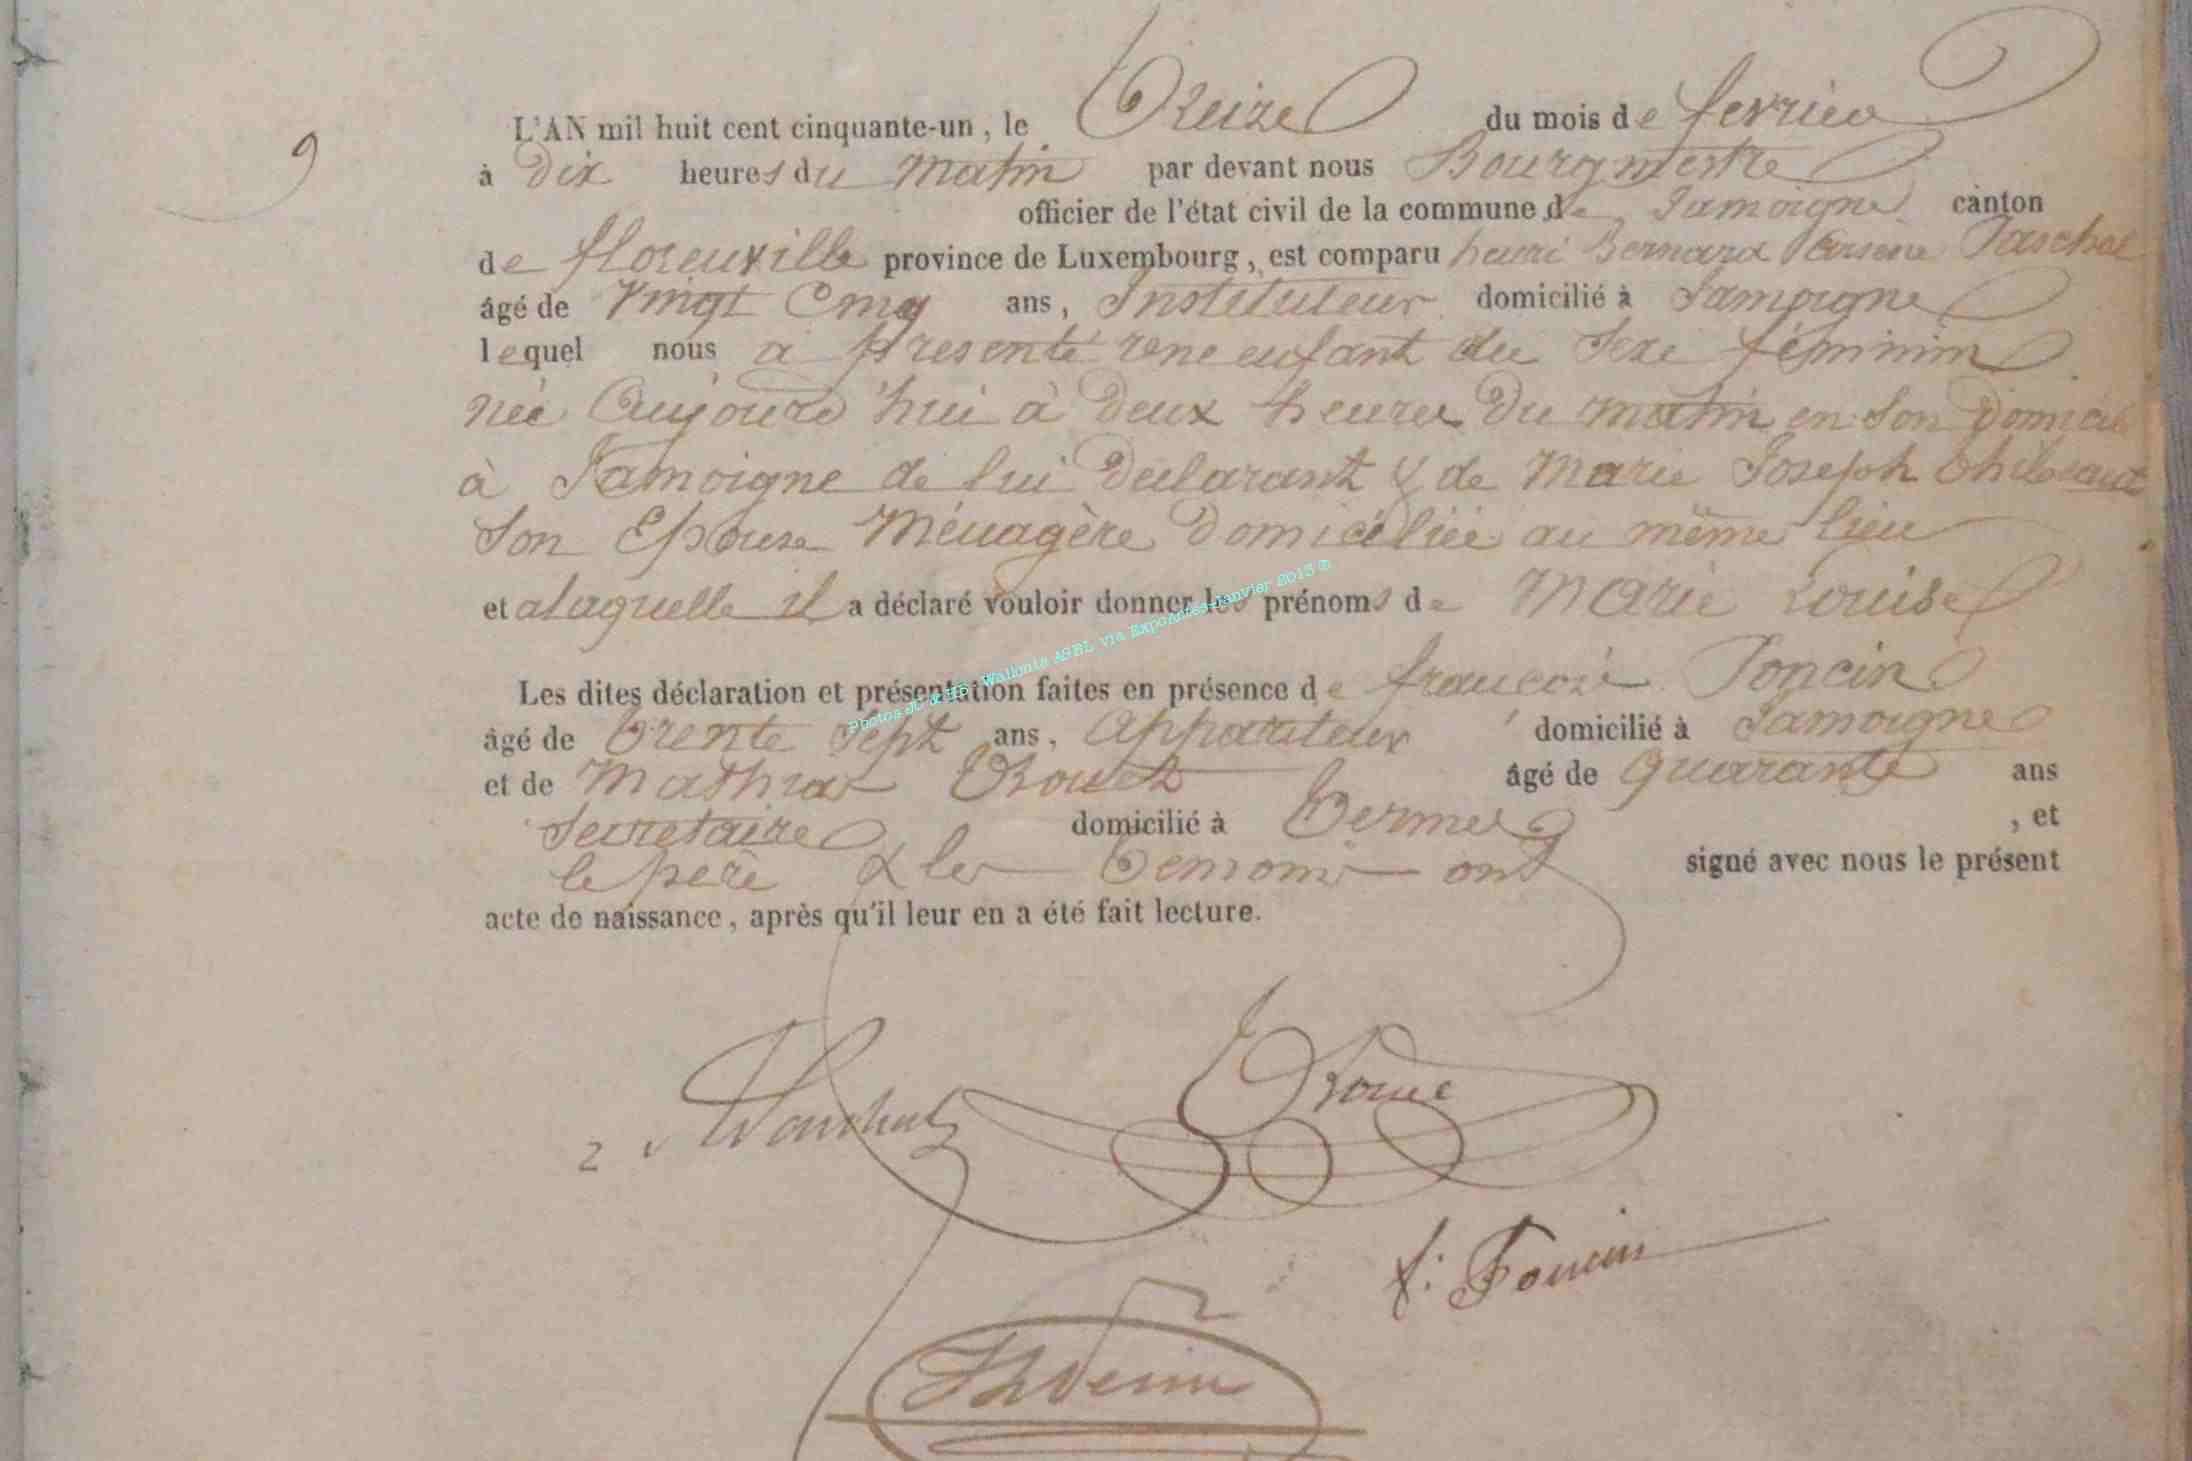 9
L'AN mil huit cent cinquante-un, le Treize du mois de fevrier
à Dix heures du matin par devant nous Bourgmestre
officier de l'état civil de la commune de Jamoigne canton
de florenville province de Luxembourg, est comparu henri Bernard Arsène Paschal
âgé de vingt Cinq ans, Instituteur domicilié à Jamoigne
lequel nous a presenté une enfant du Sexe féminin
née Aujourd'hui à Deux heures Du matin en Son Domicile
à Jamoigne de lui Déclarant & de Marie Joseph
Son Epouse Ménagère Domiciliée au même lieu
et a laquelle il a déclaré vouloir donner les prénoms de Marie Louise
Photos JC & EP Wallonia ASBL via ExpoActes-Janvier 2013 ©
Les dites déclaration et présentation faites en présence de françois Poncin
âgé de Trente Sept ans, Appariteur domicilié à Jamoigne
et de Mathias âgé de quarante ans
Secretaire domicilié à Termes, et
le père & les Temoins ont signé avec nous le présent
acte de naissance, après qu'il leur en a été fait lecture.
f: Poncin